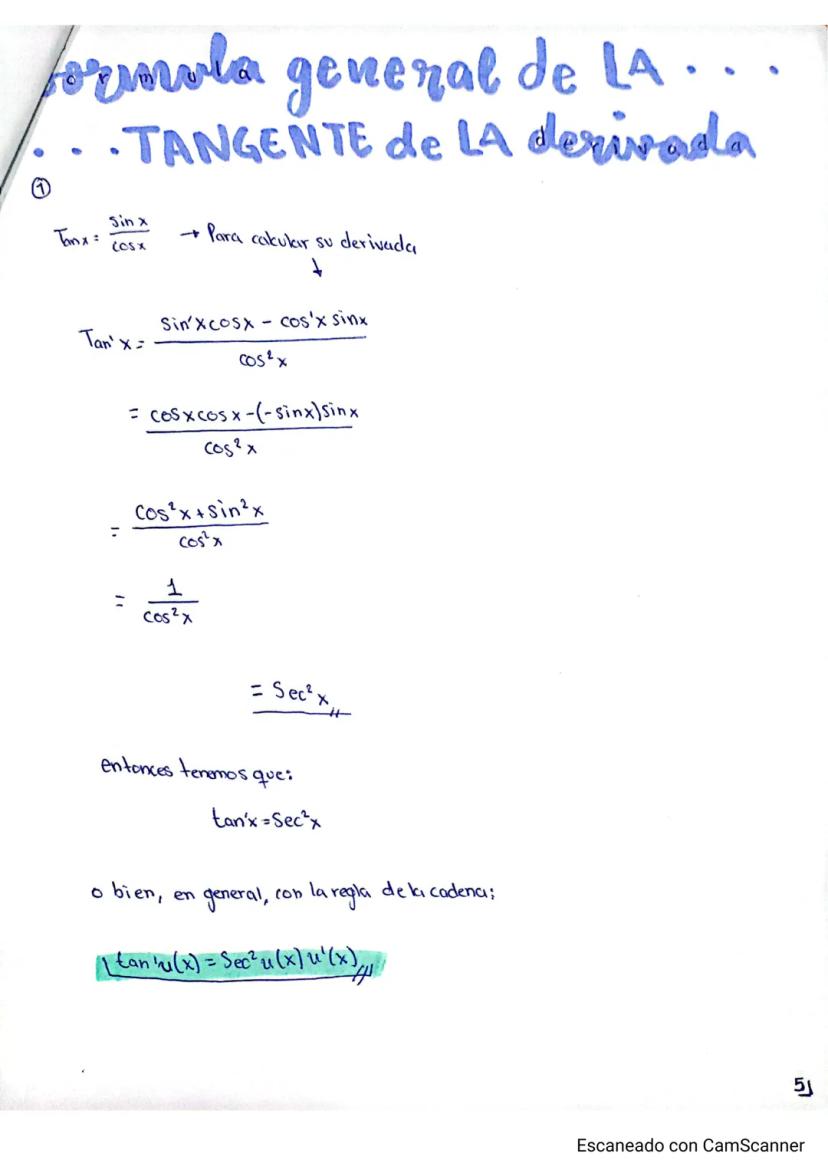 Formula general de LA . . .
. . . TANGENTE de LA derivada
①
Tan x = sin x / cos x → Para calcular su derivada
↓
Tan' x = sin'x cosx - cos'x sinx / cos²x
= cosx cosx -(-sinx)sinx / cos²x
= cos²x + sin²x / cos²x
= 1 / cos²x
= Sec²x
entonces tenemos que:
tan'x = Sec²x
o bien, en general, con la regla de la cadena;
tan'u(x) = Sec²u(x) u'(x)
5
Escaneado con CamScanner